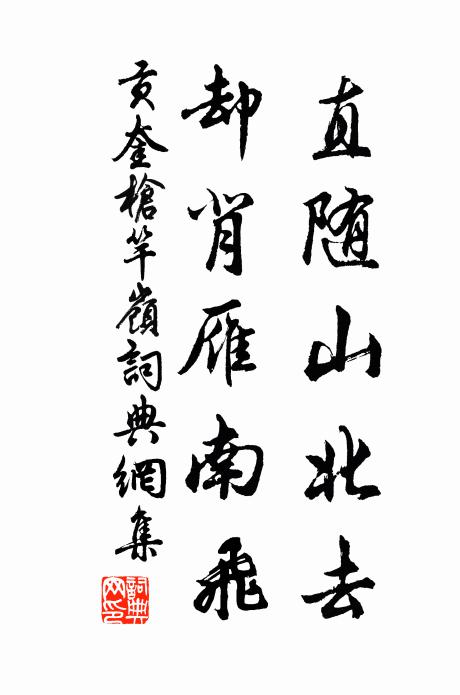 直随山北去
却背雁南飛
貢奎槍竿嶺詞典網集
詞典网印